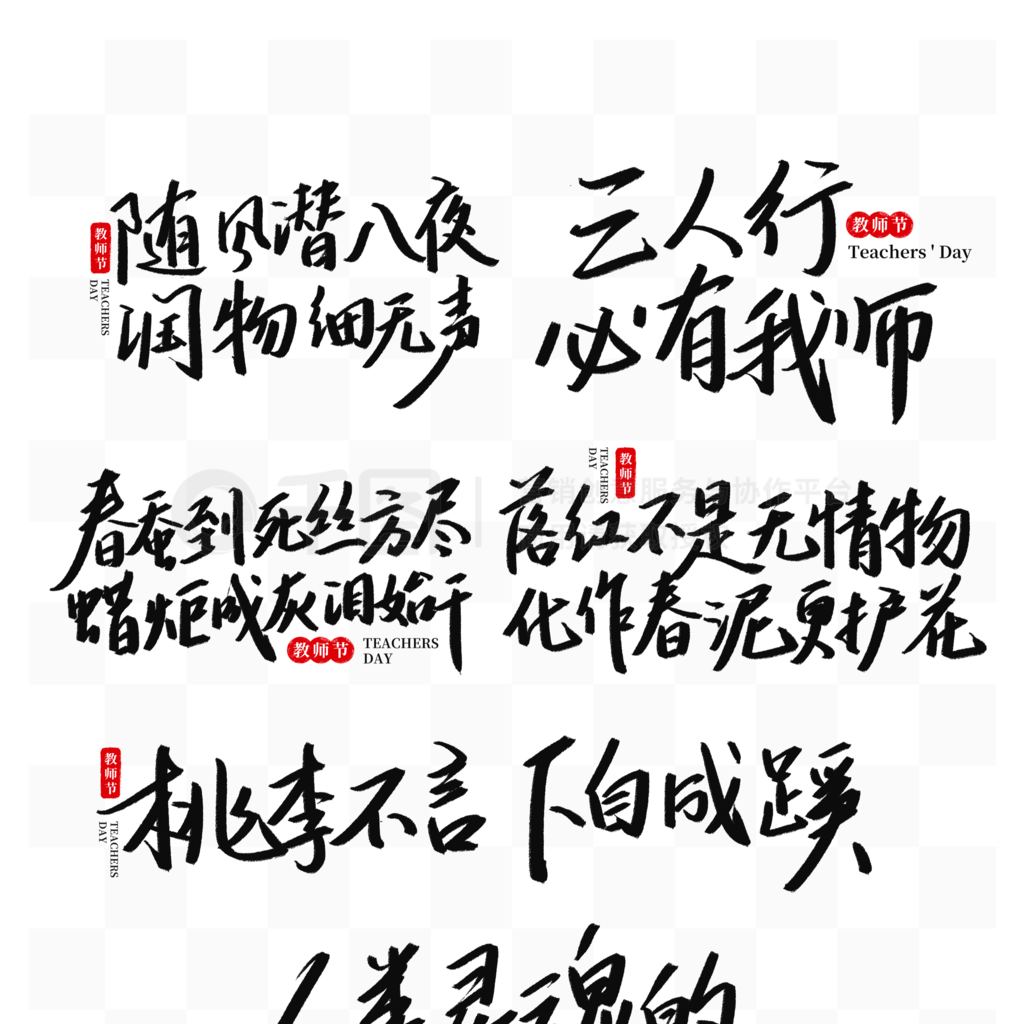 教师节
TEACHERS
DAY
随风潜入夜
润物细无声
三人行
必有我师
教师节
Teachers' Day
春蚕到死丝方尽
蜡炬成灰泪始干
教师节
TEACHERS
DAY
教师节
TEACHERS
DAY
落红不是无情物
化作春泥更护花
教师节
TEACHERS
DAY
桃李不言 下自成蹊
人类灵魂的